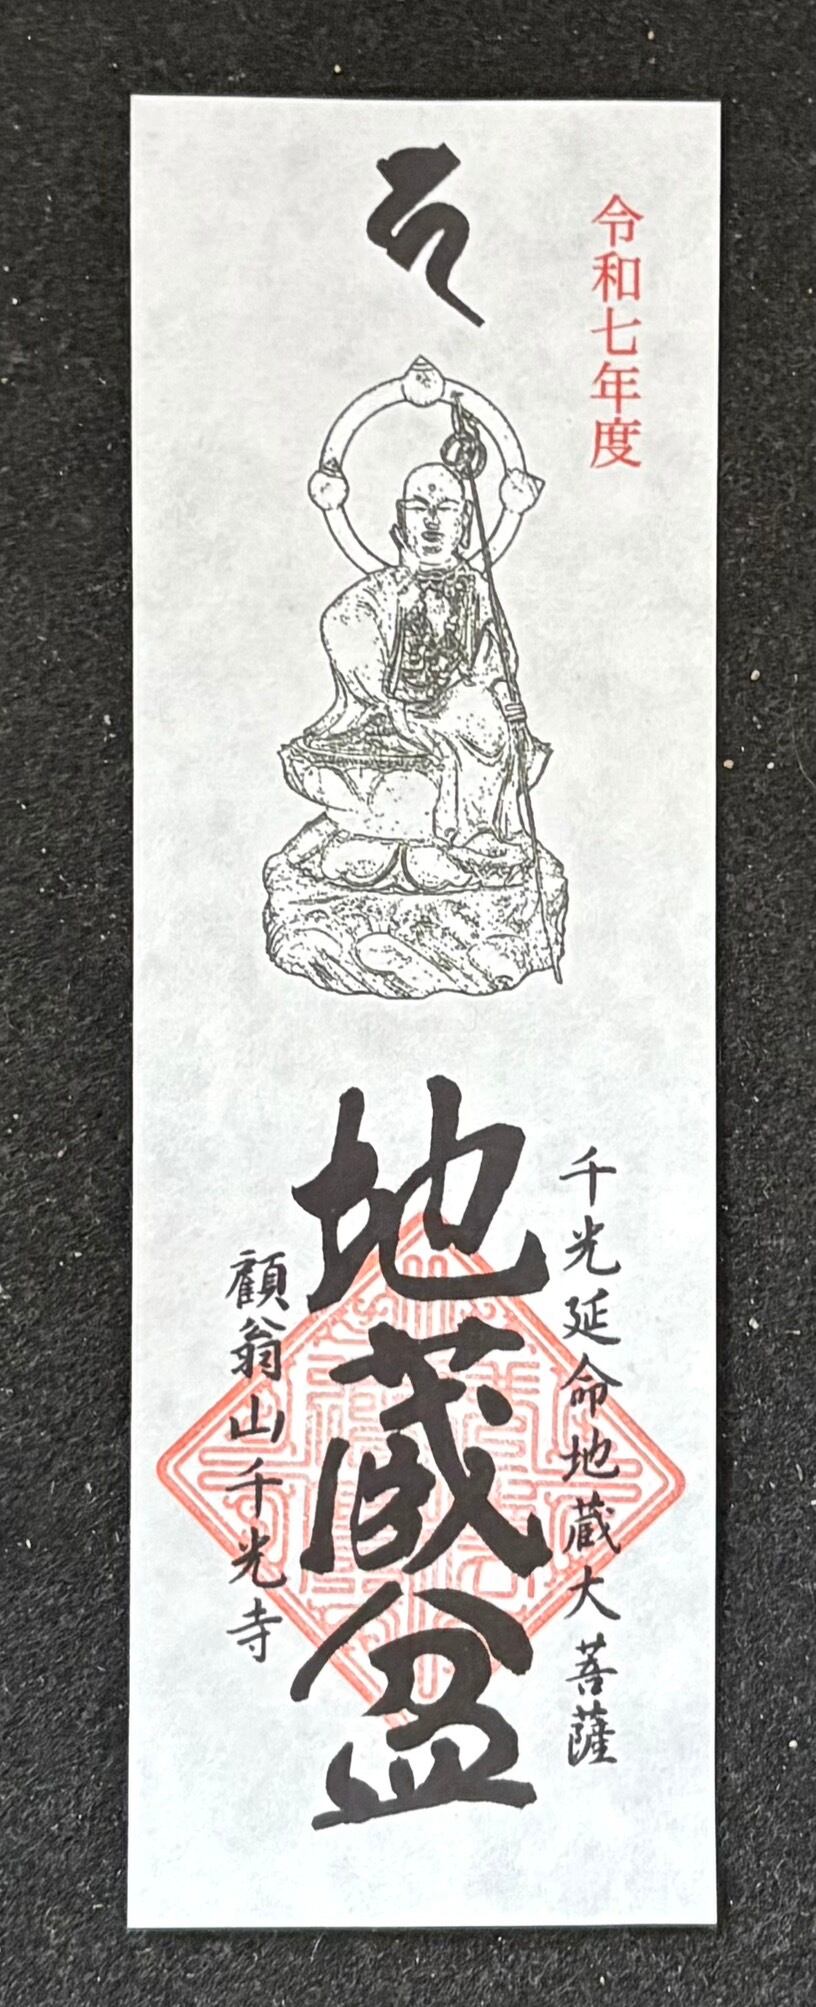 令和七年度
千光延命地蔵大菩薩
地蔵盆
顧翁山千光寺